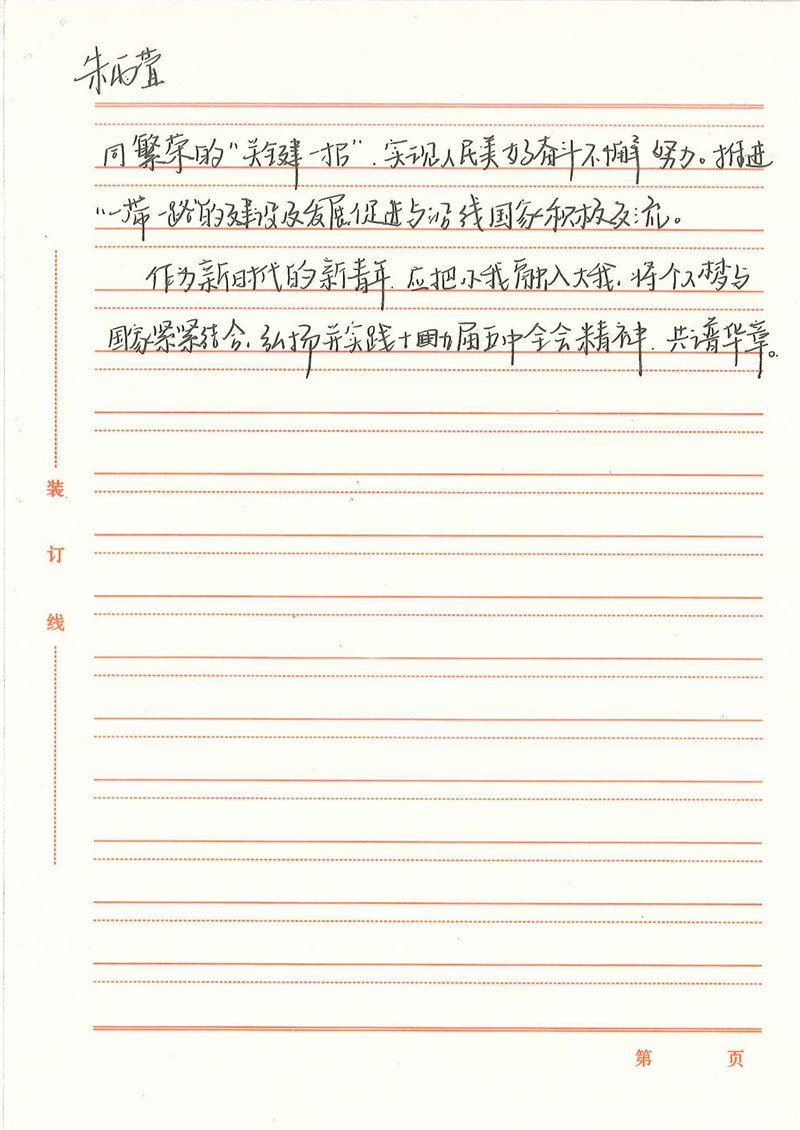 朱雨萱
同繁荣的“关键一招”,实现人民美好奋斗不懈努力。推进
“一带一路”的建设及发展,促进与沿线国家积极交流。
作为新时代的新青年,应把小我融入大我,将个人梦与
国家紧紧结合,弘扬并实践十九届五中全会精神,共谱华章。
装
订
线
第 页